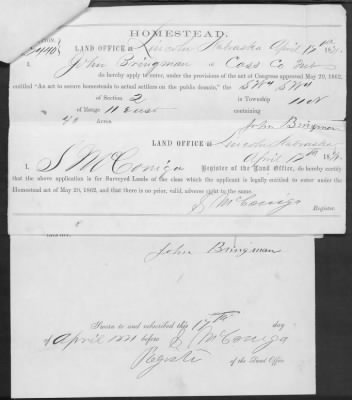 HOMESTEAD.
LAND OFFICE at Lincoln Nebraska April 17th 1871
I, John Bringman of Cass Co Neb
do hereby apply to enter, under the provisions of the act of Congress approved May 20, 1862,
entitled "An act to secure homesteads to actual settlers on the public domain," the SW4 SW4
of Section 2 in Township 11 N
of Range 11 East
40 Acres
John Bringman
LAND OFFICE at Lincoln Nebraska
April 17th 1871
I, S McConiga Register of the Land Office, do hereby certify
that the above application is for Surveyed Lands of the class which the applicant is legally entitled to enter under the
Homestead act of May 20, 1862, and that there is no prior, valid, adverse right to the same.
S McConiga
Register.
John Bringman
Sworn to and subscribed this 17th day
of April 1871 before S McConiga
Register of the Land Office